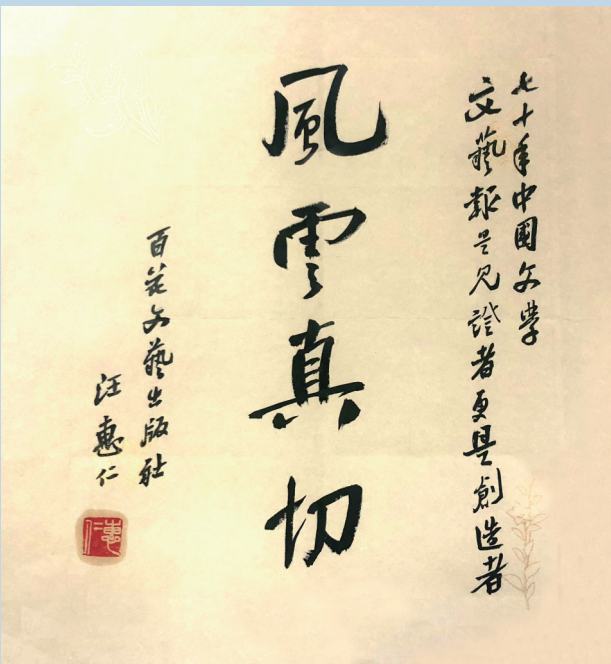 七十年中國文學
文藝報是見證者更是創造者
風雲真切
百花文藝出版社
汪惠仁
惠仁